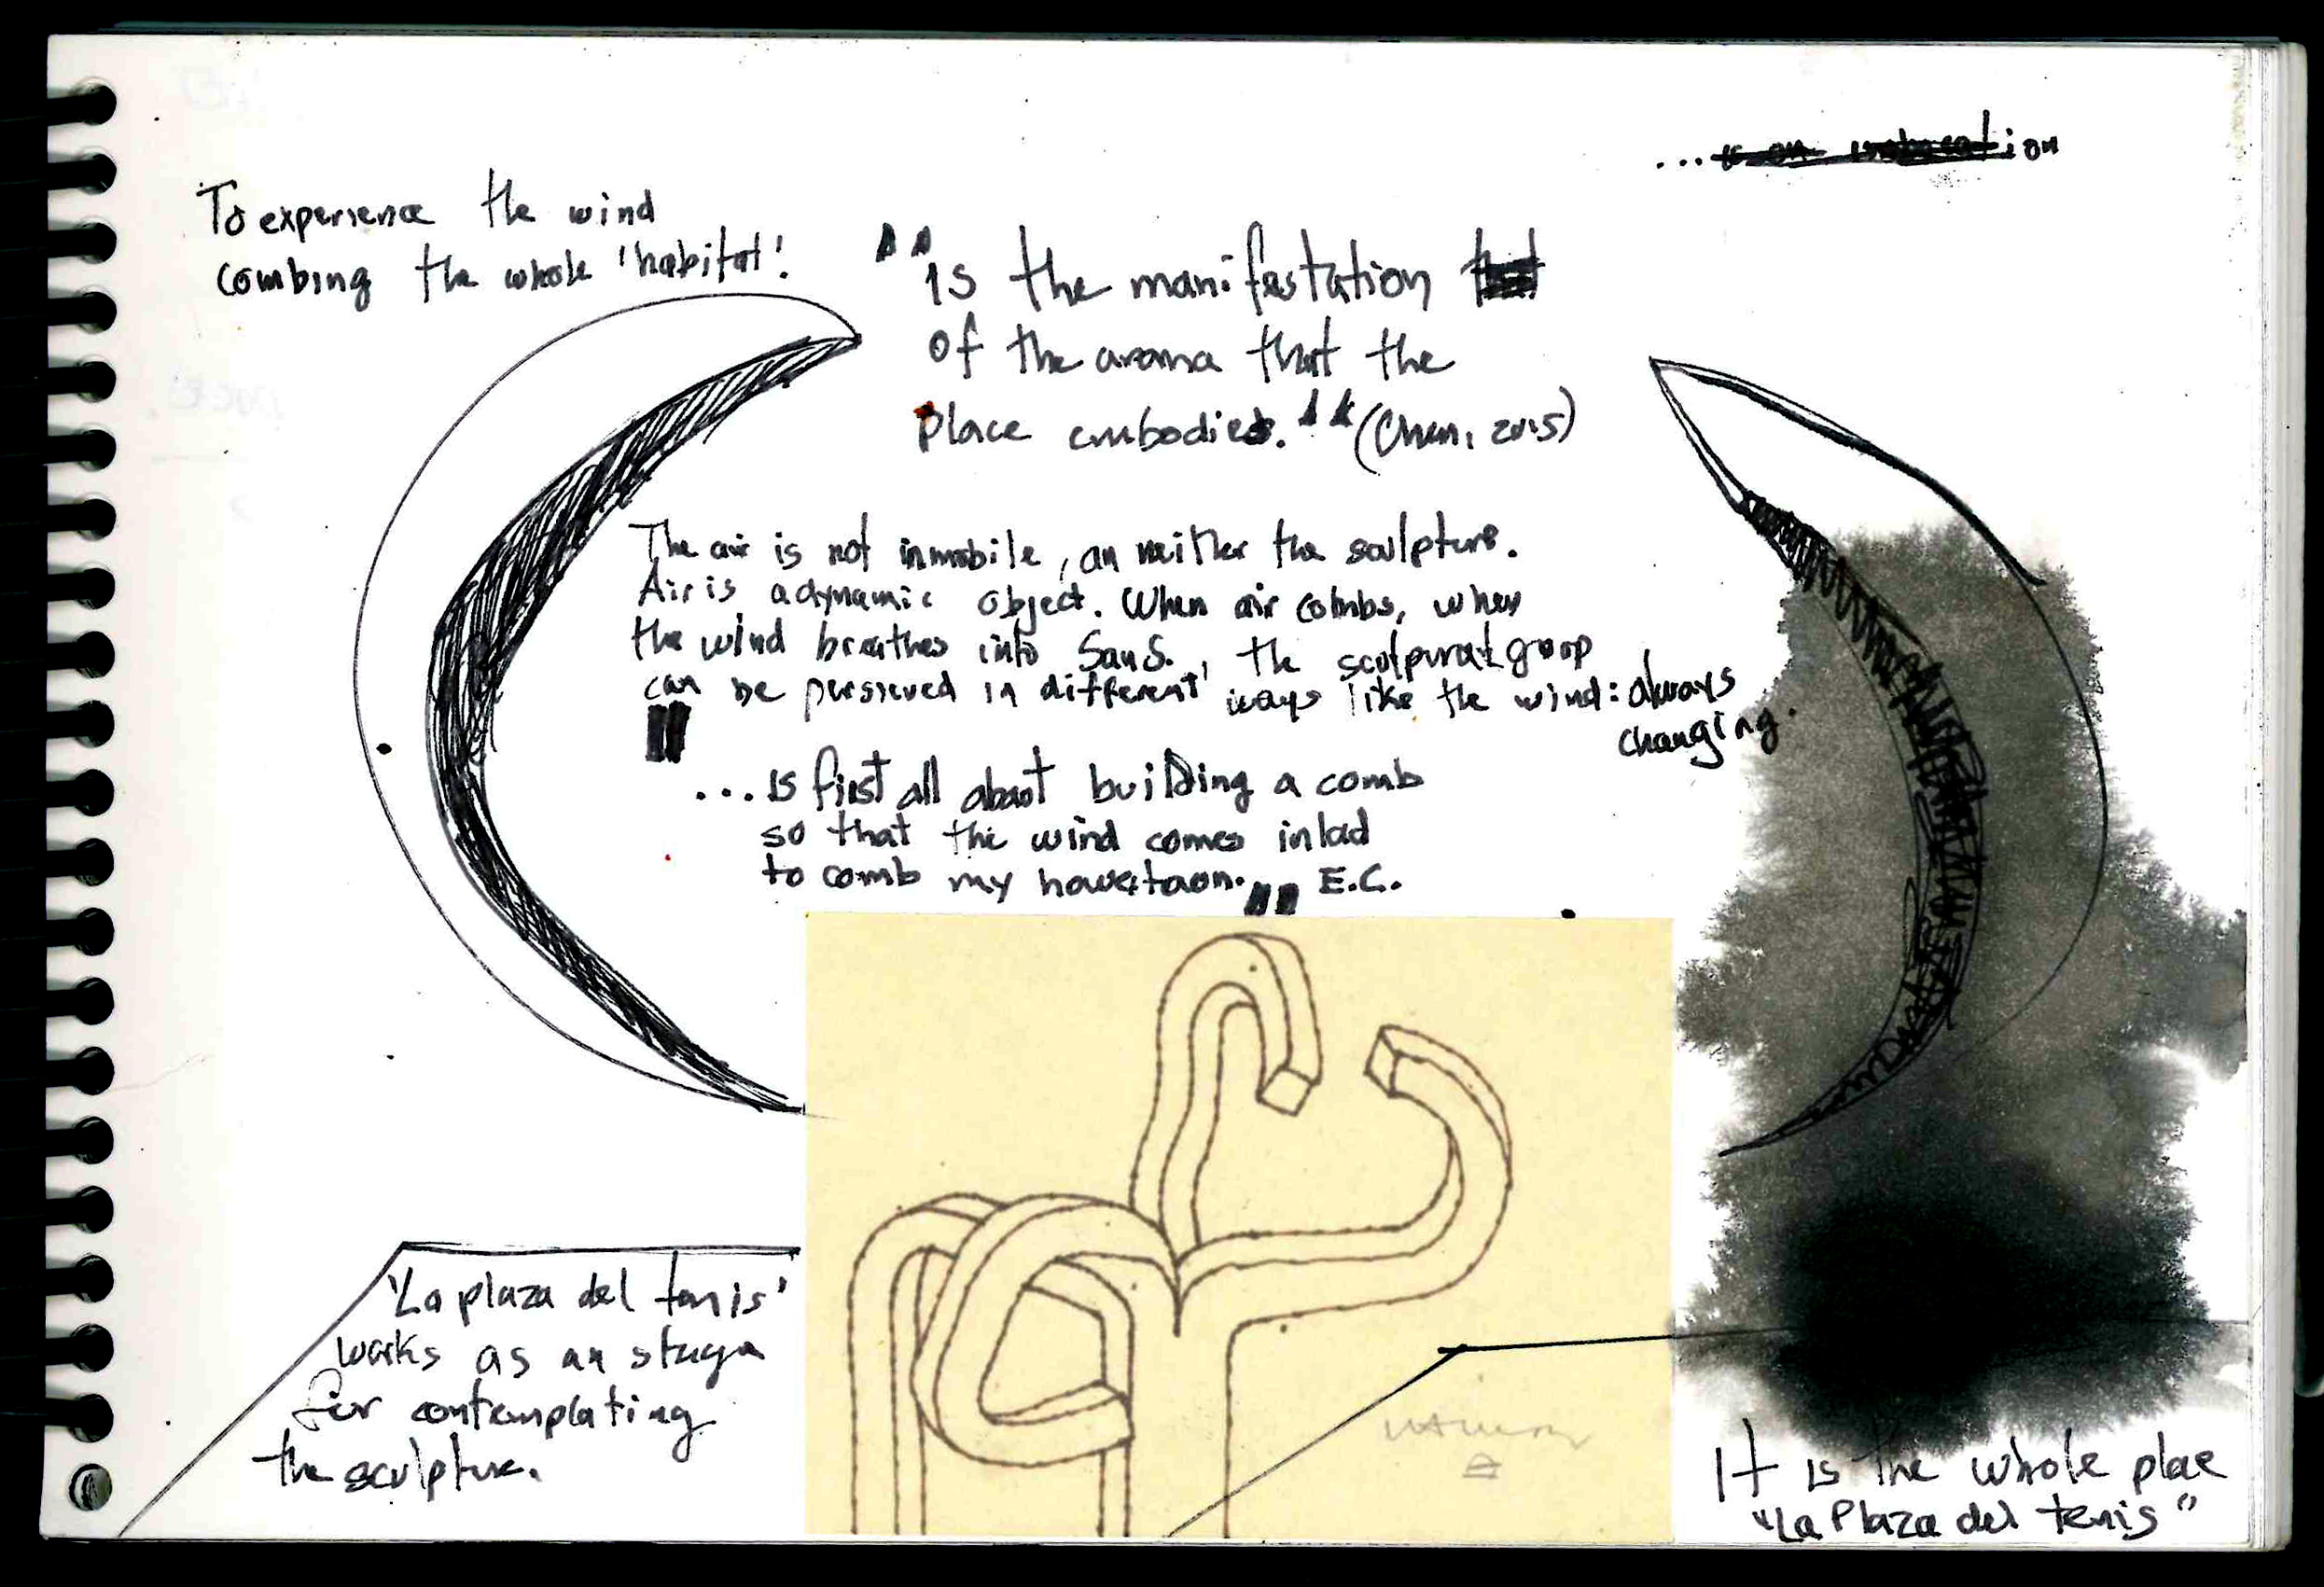 To experience the wind
combing the whole 'habitat'.
"is the manifestation
of the aroma that the
Place embodies." (Chen, 2015)
The air is not inmobile, an neither the sculpture.
Air is a dynamic object. When air combs, when
the wind breathes into San S., the sculpural goop
can be persieved in different ways like the wind: always
changing.
"...is first all about building a comb
so that the wind comes in
to comb my E.C.
'La plaza del tenis'
works as an stage
for contemplating
the sculpture.
It is the whole plae
"La Plaza del tenis"